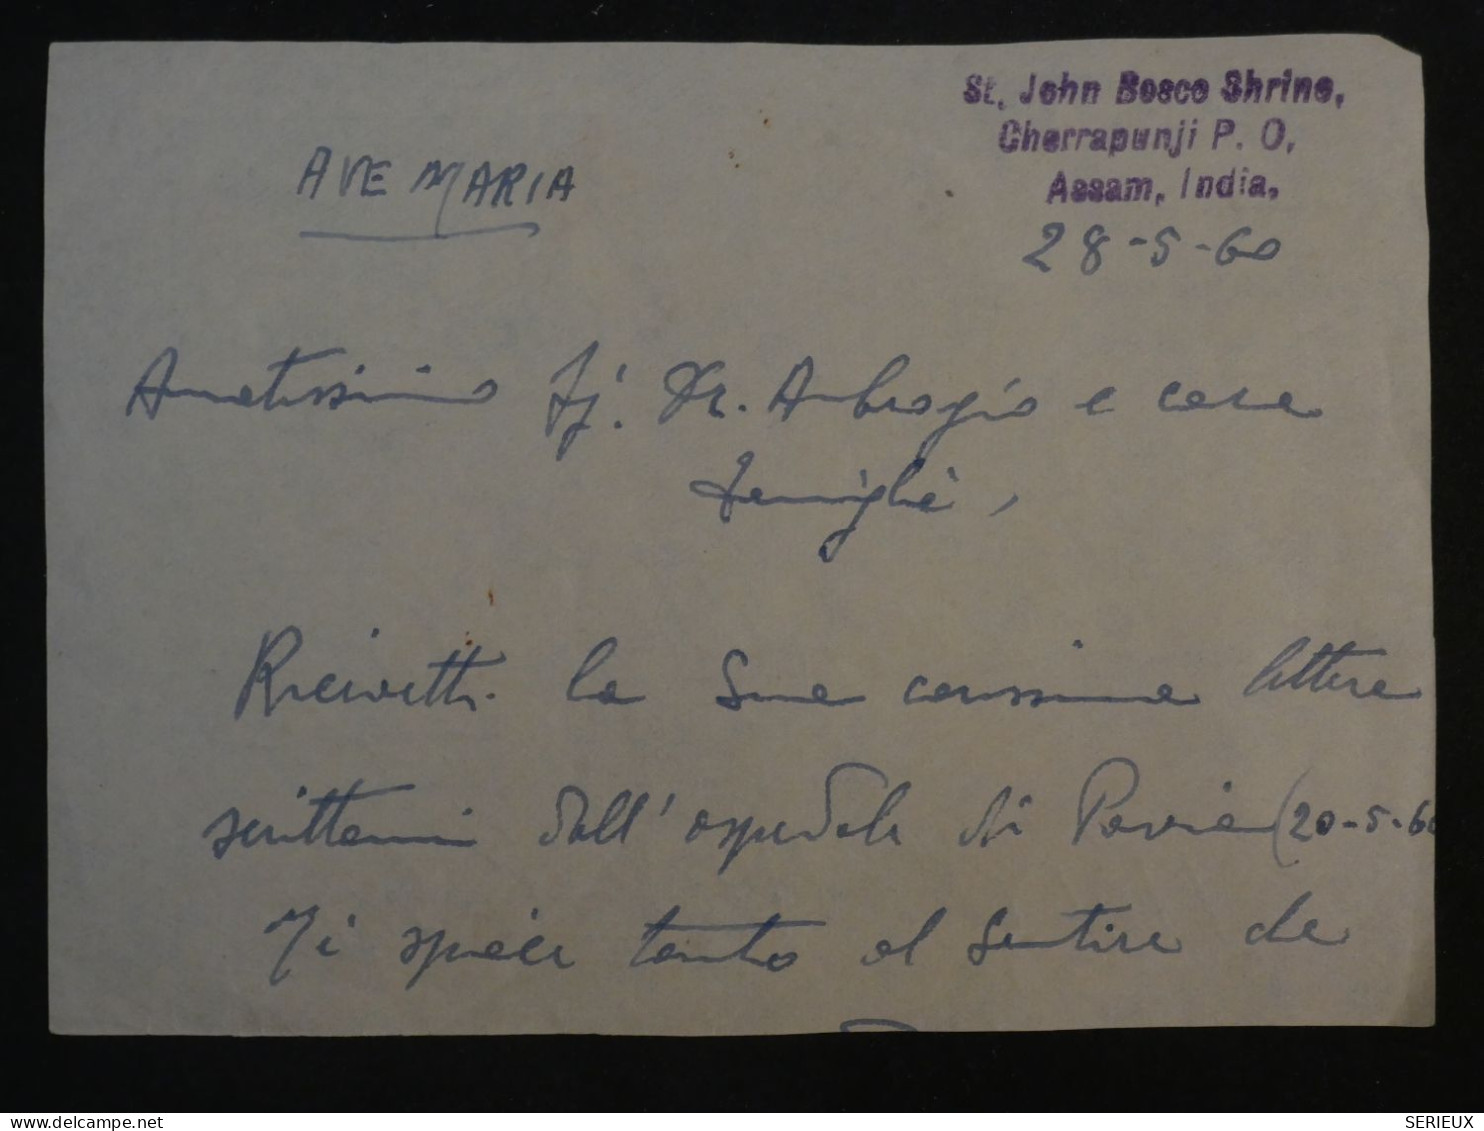 St. John Bosco Shrine,
Cherrapunji P. O,
Assam, India,
28-5-60
AVE MARIA
Amatissimo Sig. Dr. Ambrogio e cara
famiglia,
Ricevetti la Sua carissima lettera
scrittami dall'ospedale di Pavia (20-5-60
Mi spiace tanto al sentire che
SERIEUX